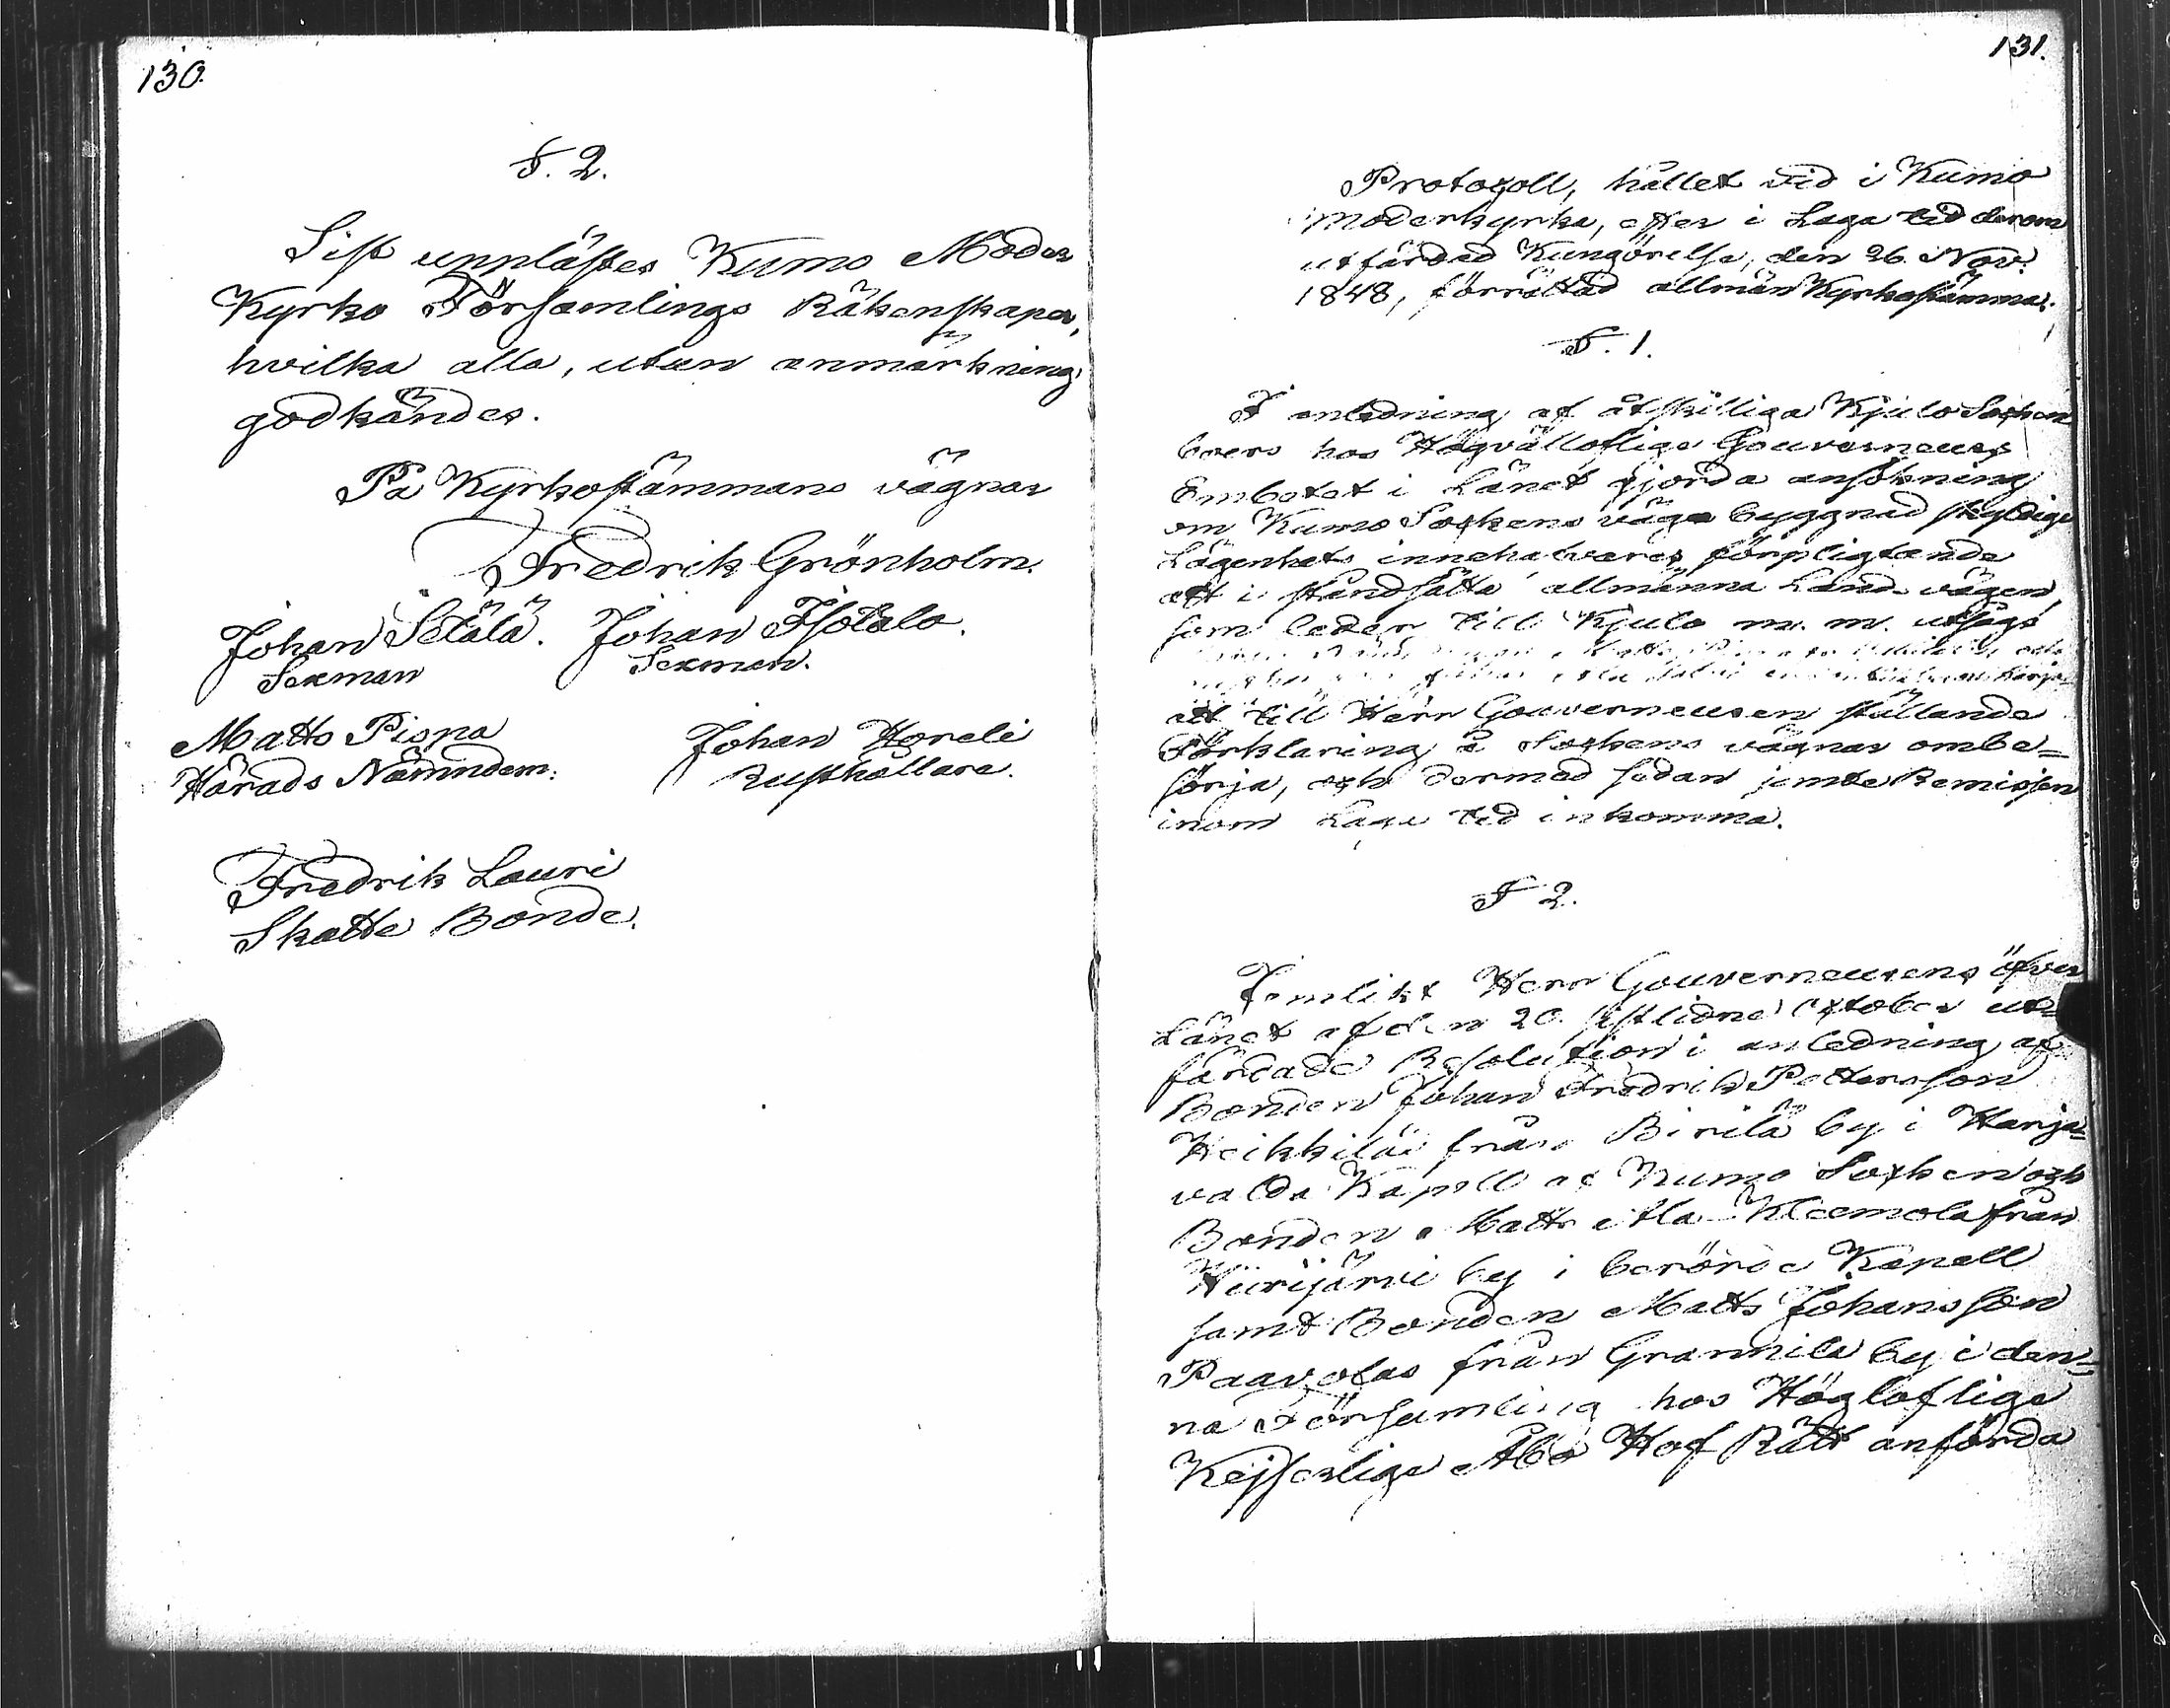 130.
§. 2.
Sist upplästes Kumo Moder
Kyrko Församlings Räkenskaper,
hvilka alla, utan anmärkning
godkändes.
På Kyrkostämmans vägnar
Fredrik Grönholm.
Johan Setälä. Johan Isotalo.
Sexman Sexman.
Matts Pispa Johan Horeli
Härads Nämndem. Rusthållare.
Fredrik Lauri
Skatte Bonde.
131.
Protocoll, hållet vid i Kumo
Moderkyrka, efter i Laga tid derom
utfärdad Kungörelse, den 26. Nov.
1848, förrättad allmän Kyrkostämma.
§. 1.
I anledning af åtskilliga Kjulo Socken
boers hos Högvälloflige Gouverneurs
Embetet i Länet gjorda ansökning
om Kumo Sockens väga byggnad skyldige
Lägenhets innehafvares förpligtande
att i ståndsätta allmänna Lands vägen,
som leder till Kjulo m. m. utsågs
att till Herr Gouverneuren ställande
Förklaring å Sockens vägnar ombe=
sörja, och dermed sedan jemte Remissen
inom Laga tid inkomma.
§ 2.
Jemlikt Herr Gouverneurens öfver
Länet af den 20. sistlidne October ut=
färdade Resolution i anledning af
Bonden Johan Fredrik Pettersson
Heikkilä från Pirilä by i Harja=
valda Kapell af Kumo Socken och
Bonden Matts Ala Kleemola från
Hiirijärvi by i berörde Kapell
samt Bonden Matts Johansson
Paavolas från Grannila by i den=
na Församling hos Högloflige
Kejserlige Åbo Hof Rätt anförda